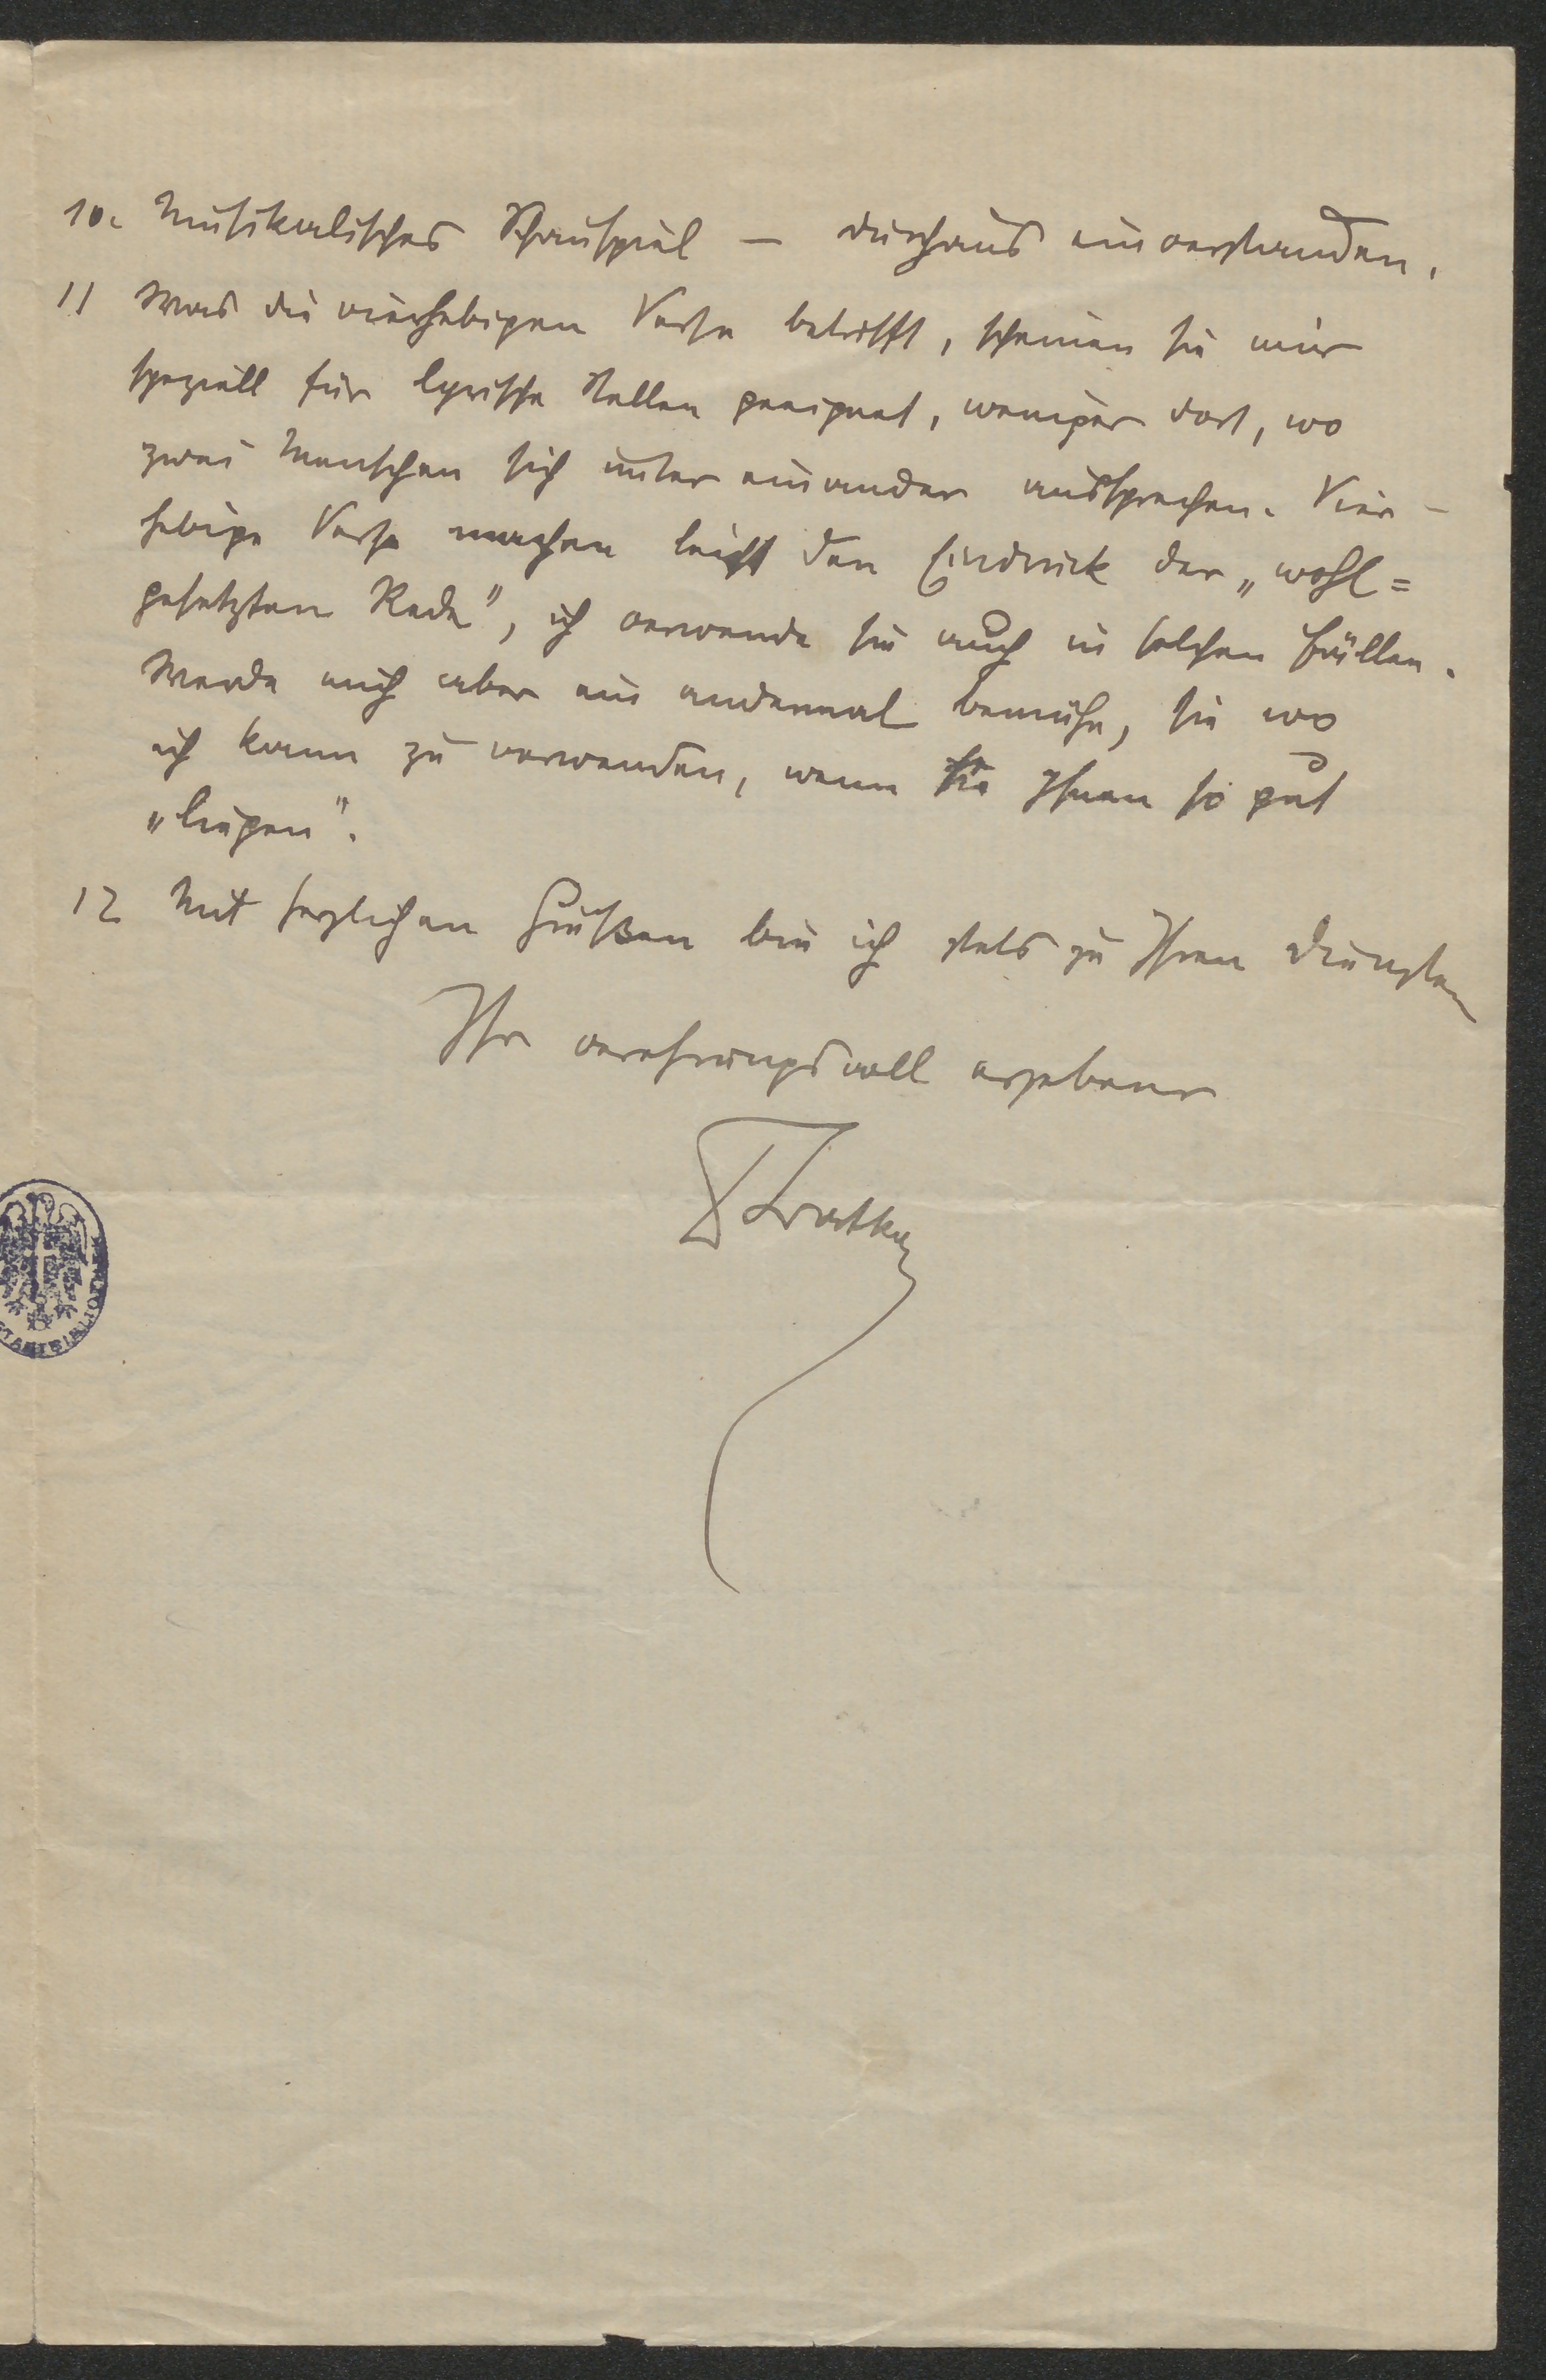 10. Musikalisches Schauspiel — durchaus einverstanden.
11 Was die vierhebigen Verse betrifft, scheinen sie mir
speziell für lyrische Stellen geeignet, weniger dort, wo
zwei Menschen sich unter einander aussprechen. Vier-
hebige Verse machen leicht den Eindruck der „wohl=
gesetzten Rede", ich verwende sie auch in solchen Fällen.
Werde mich aber ein andermal bemühn, sie wo
ich kann zu verwenden, wenn sie Ihnen so gut
„liegen".
12 Mit herzlichen Grüßen bin ich stets zu Ihren Diensten
Ihr verehrungsvoll ergebener